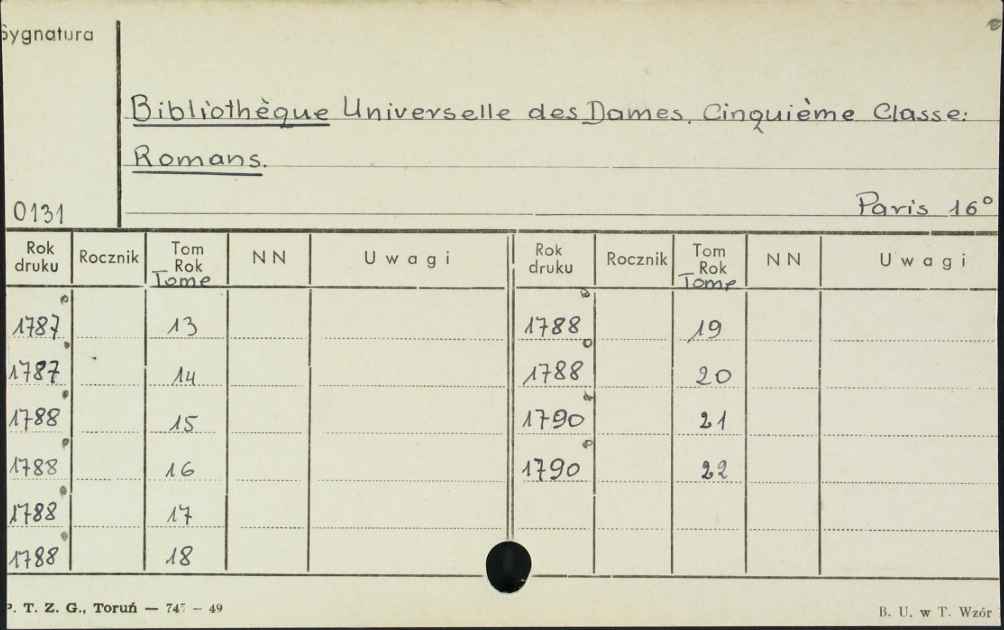 Sygnatura
Bibliothèque Universelle des Dames. Cinquième Classe:
Romans.
0131
Paris 16°
Rok druku Rocznik Tom Rok Tome NN Uwagi Rok druku Rocznik Tom Rok Tome NN Uwagi
1787 13 1788 19
1787 14 1788 20
1788 15 1790 21
1788 16 1790 22
1788 17
1788 18
P. T. Z. G., Toruń — 747 — 49
B. U. w T. Wzór